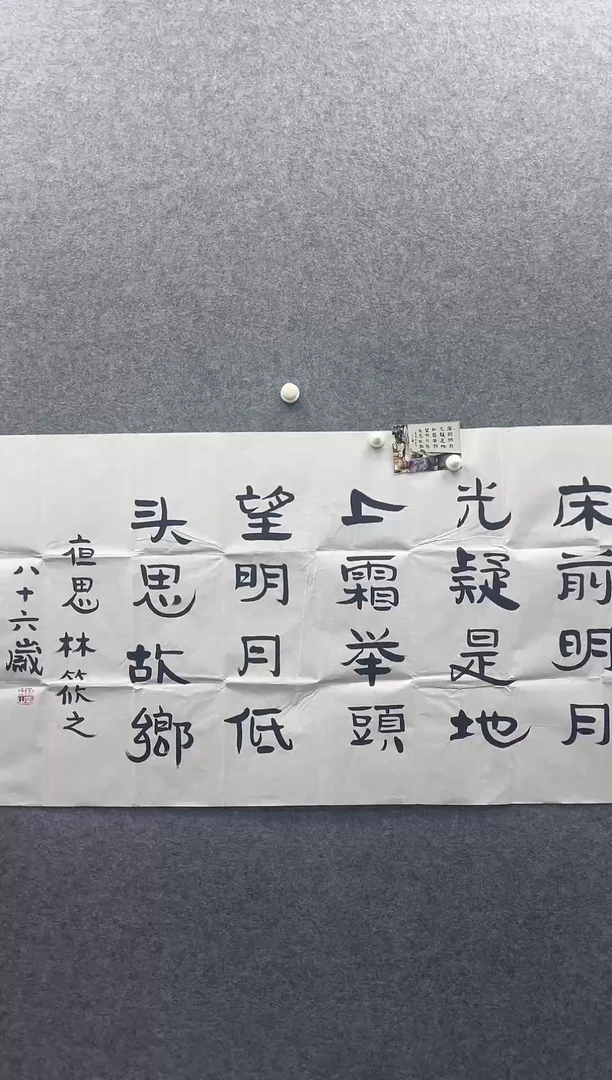 床前明月
光疑是地
上霜举頭
望明月低
头思故鄉
夜思 林筱之
八十六歲